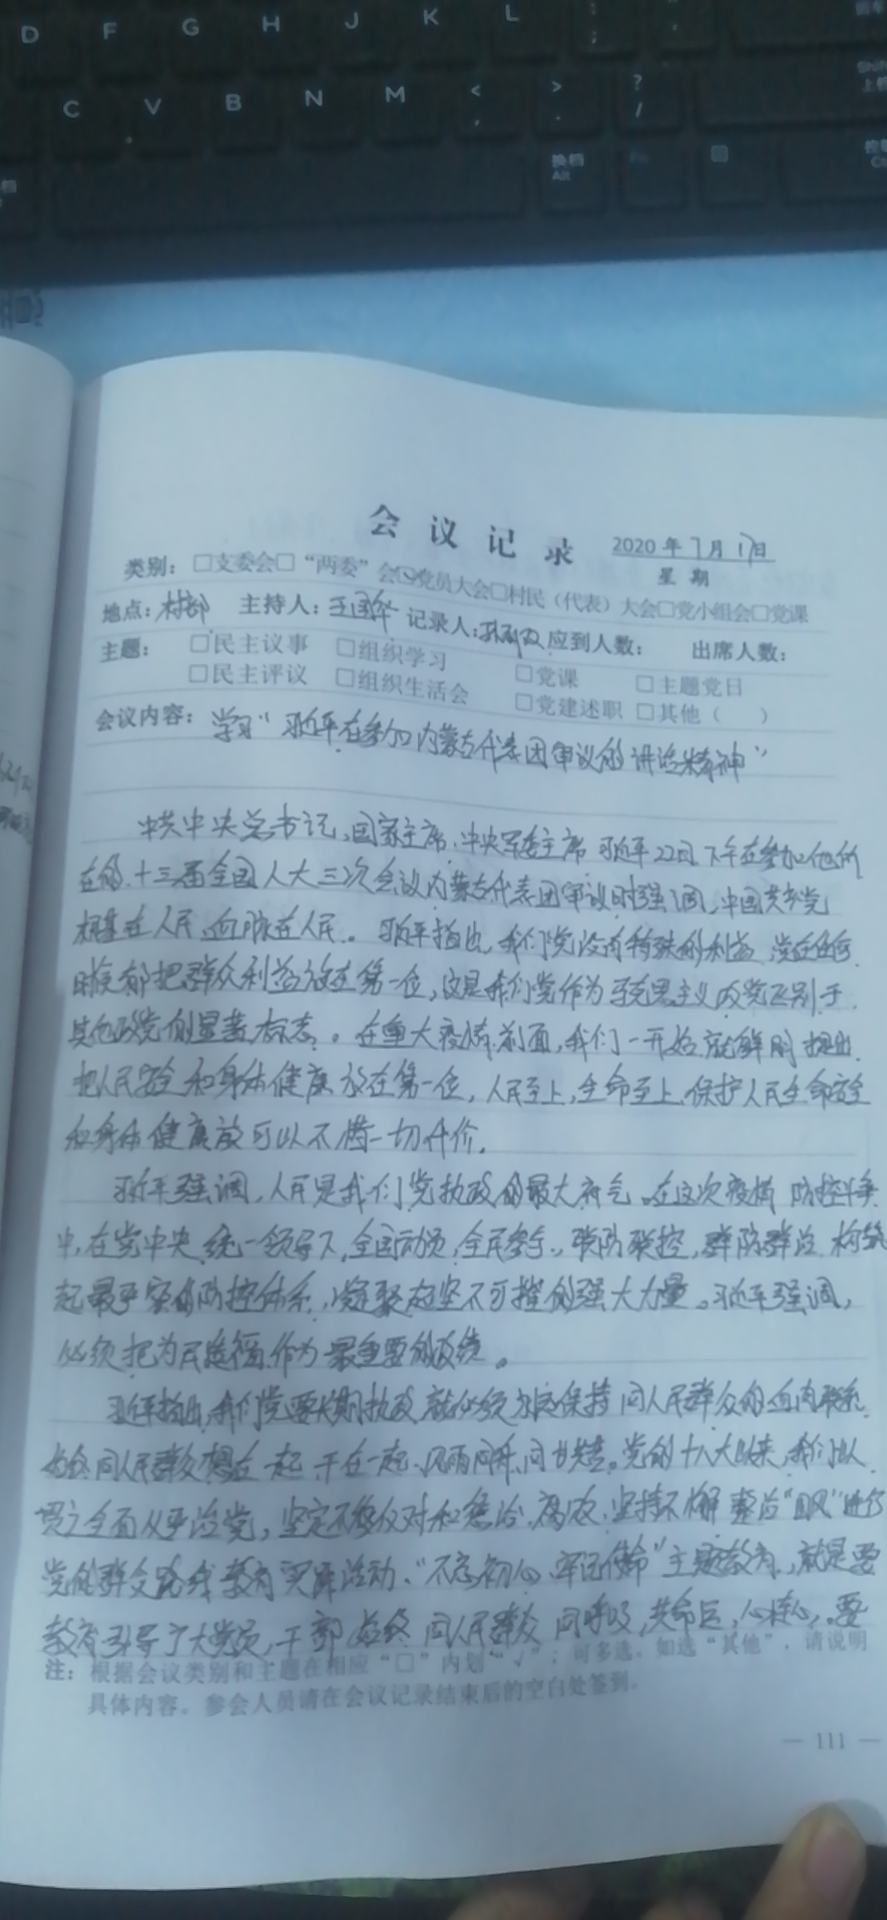 D F G H J K L ;
C V B N M < , > . ? /
换档 Alt
会议记录
2020年7月17日
星期
类别：□支委会□“两委”会☑党员大会□村民（代表）大会□党小组会□党课
地点：村部 主持人：王国华 记录人： 应到人数： 出席人数：
主题： □民主议事 □组织学习 □党课 □主题党日
□民主评议 □组织生活会 □党建述职 □其他（ ）
会议内容：学习“习近平在参加内蒙古代表团审议的讲话精神”
中共中央总书记、国家主席、中央军委主席习近平22日下午在参加他所
在的十三届全国人大三次会议内蒙古代表团审议时强调，中国共产党
根基在人民、血脉在人民。习近平指出，我们党没有特殊的利益，党在任何
时候都把群众利益放在第一位，这是我们党作为马克思主义政党区别于
其他政党的显著标志。在重大疫情前面，我们一开始就鲜明提出
把人民安全和身体健康放在第一位，人民至上，生命至上，保护人民生命安全
和身体健康 可以不惜一切代价。
习近平强调，人民是我们党执政的最大底气。在这次疫情防控斗争
中，在党中央统一领导下，全国动员，全民参与，联防联控，群防群治，构筑
起最严密的防控体系，凝聚起坚不可摧的强大力量。习近平强调，
必须把为民造福作为最重要的政绩。
习近平指出，我们党要长期执政，就必须 保持同人民群众的血肉联系，
始终同人民群众想在一起、干在一起，风雨同舟、同甘共苦。党的十八大以来，我们以
贯之全面从严治党，坚定不移反对和惩治腐败，坚持不懈整治“四风”，进行
党的群众路线教育实践活动、“不忘初心、牢记使命”主题教育，就是要
教育引导广大党员、干部始终同人民群众同呼吸、共命运、心连心。要
注：根据会议类别和主题在相应“□”内划“√”；可多选。如选“其他”，请说明
具体内容。参会人员请在会议记录结束后的空白处签到。
— 111 —